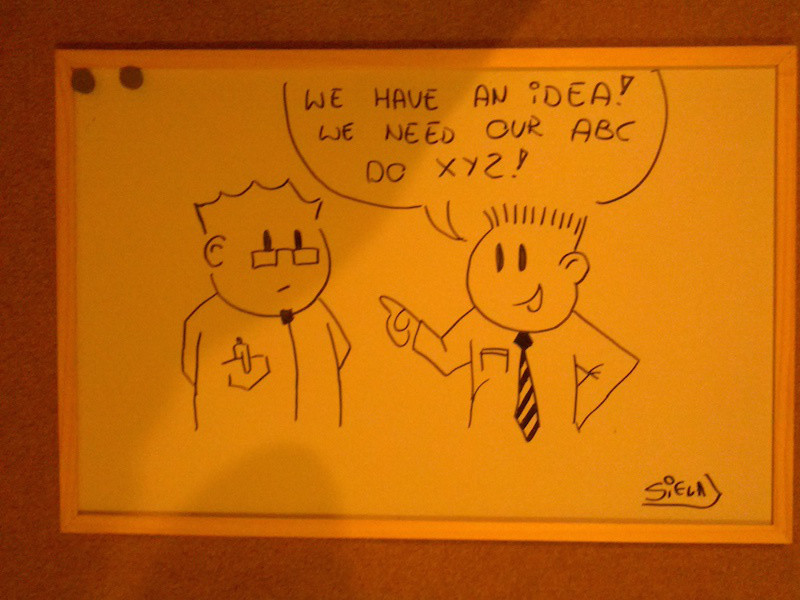 WE HAVE AN IDEA!
WE NEED OUR ABC
DO XYZ!
SIELAJ